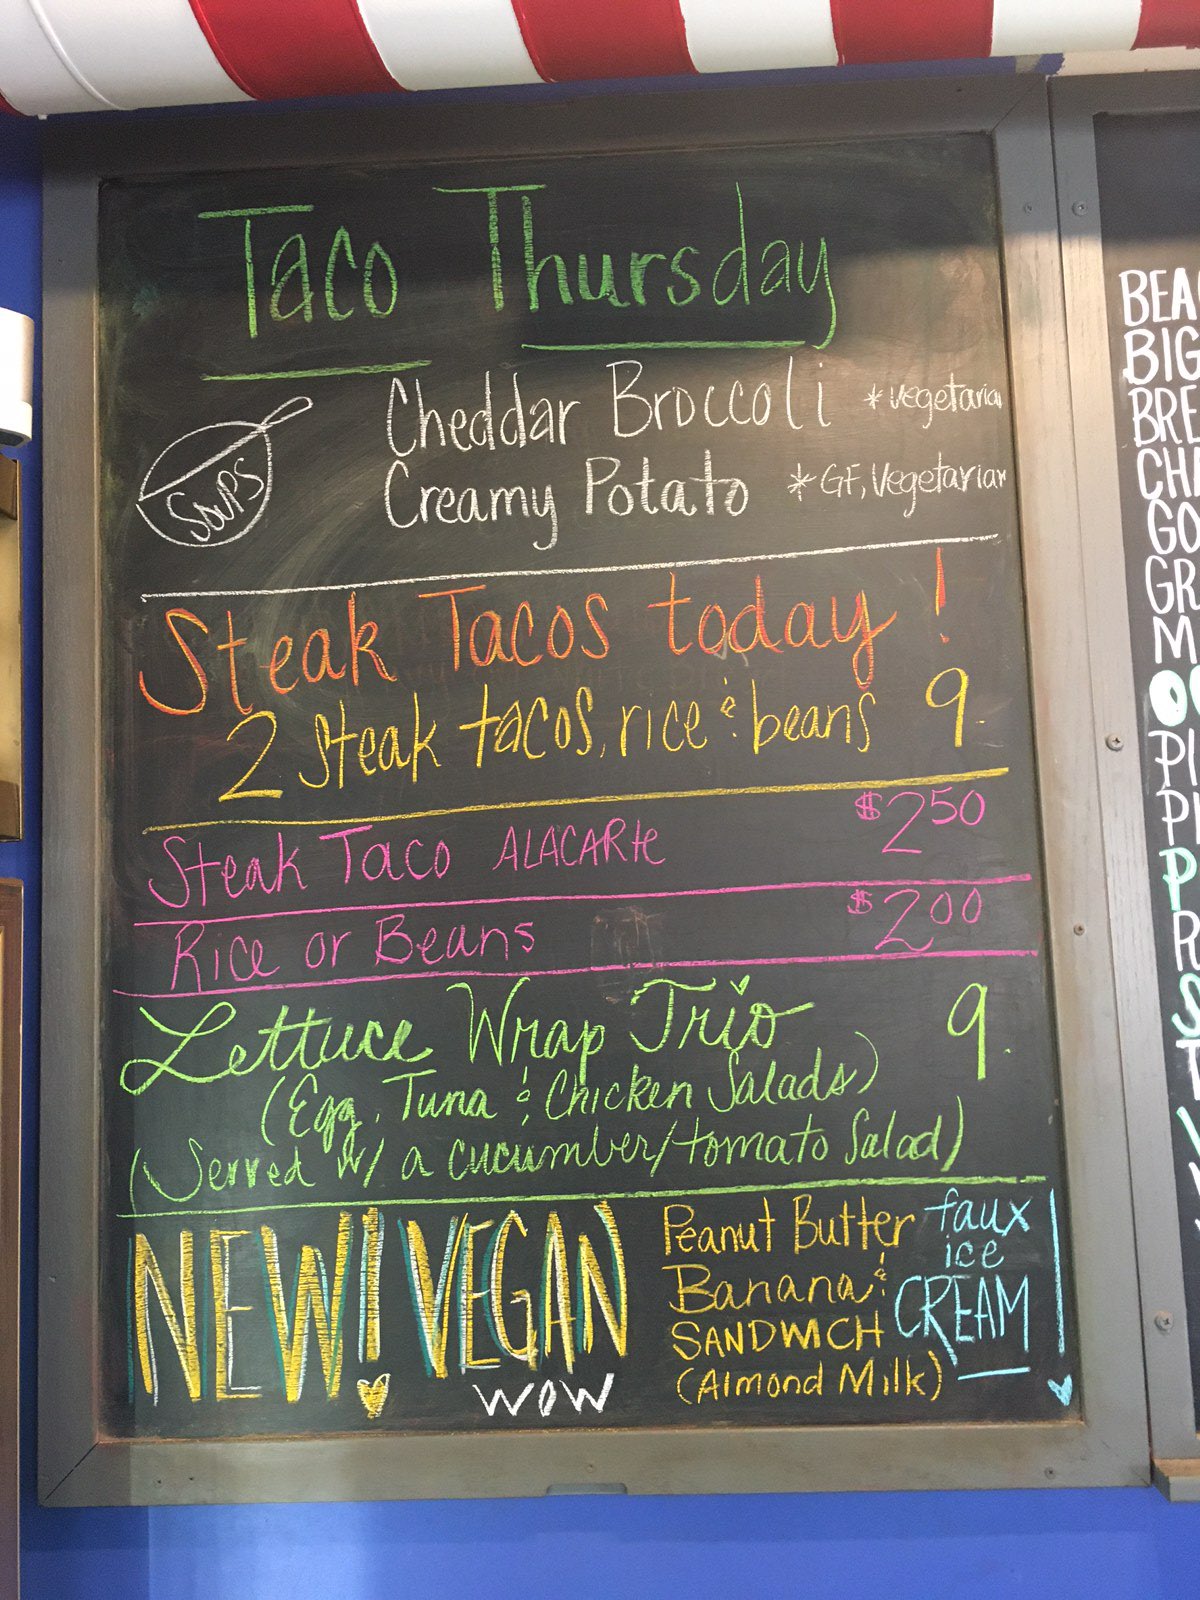 Taco Thursday
Soups
Cheddar Broccoli *vegetarian
Creamy Potato *GF, Vegetarian
Steak Tacos today!
2 Steak tacos, rice & beans 9.
Steak Taco ALACARte $2.50
Rice or Beans $2.00
Lettuce Wrap Trio 9.
(Egg, Tuna & Chicken Salads)
(Served w/ a cucumber/tomato Salad)
NEW! VEGAN
WOW
Peanut Butter
& Banana
SANDWICH
(Almond Milk)
faux
ice
CREAM!
BEA
BIG
BRE
CH
GO
GR
M
PI
P
P
R
S